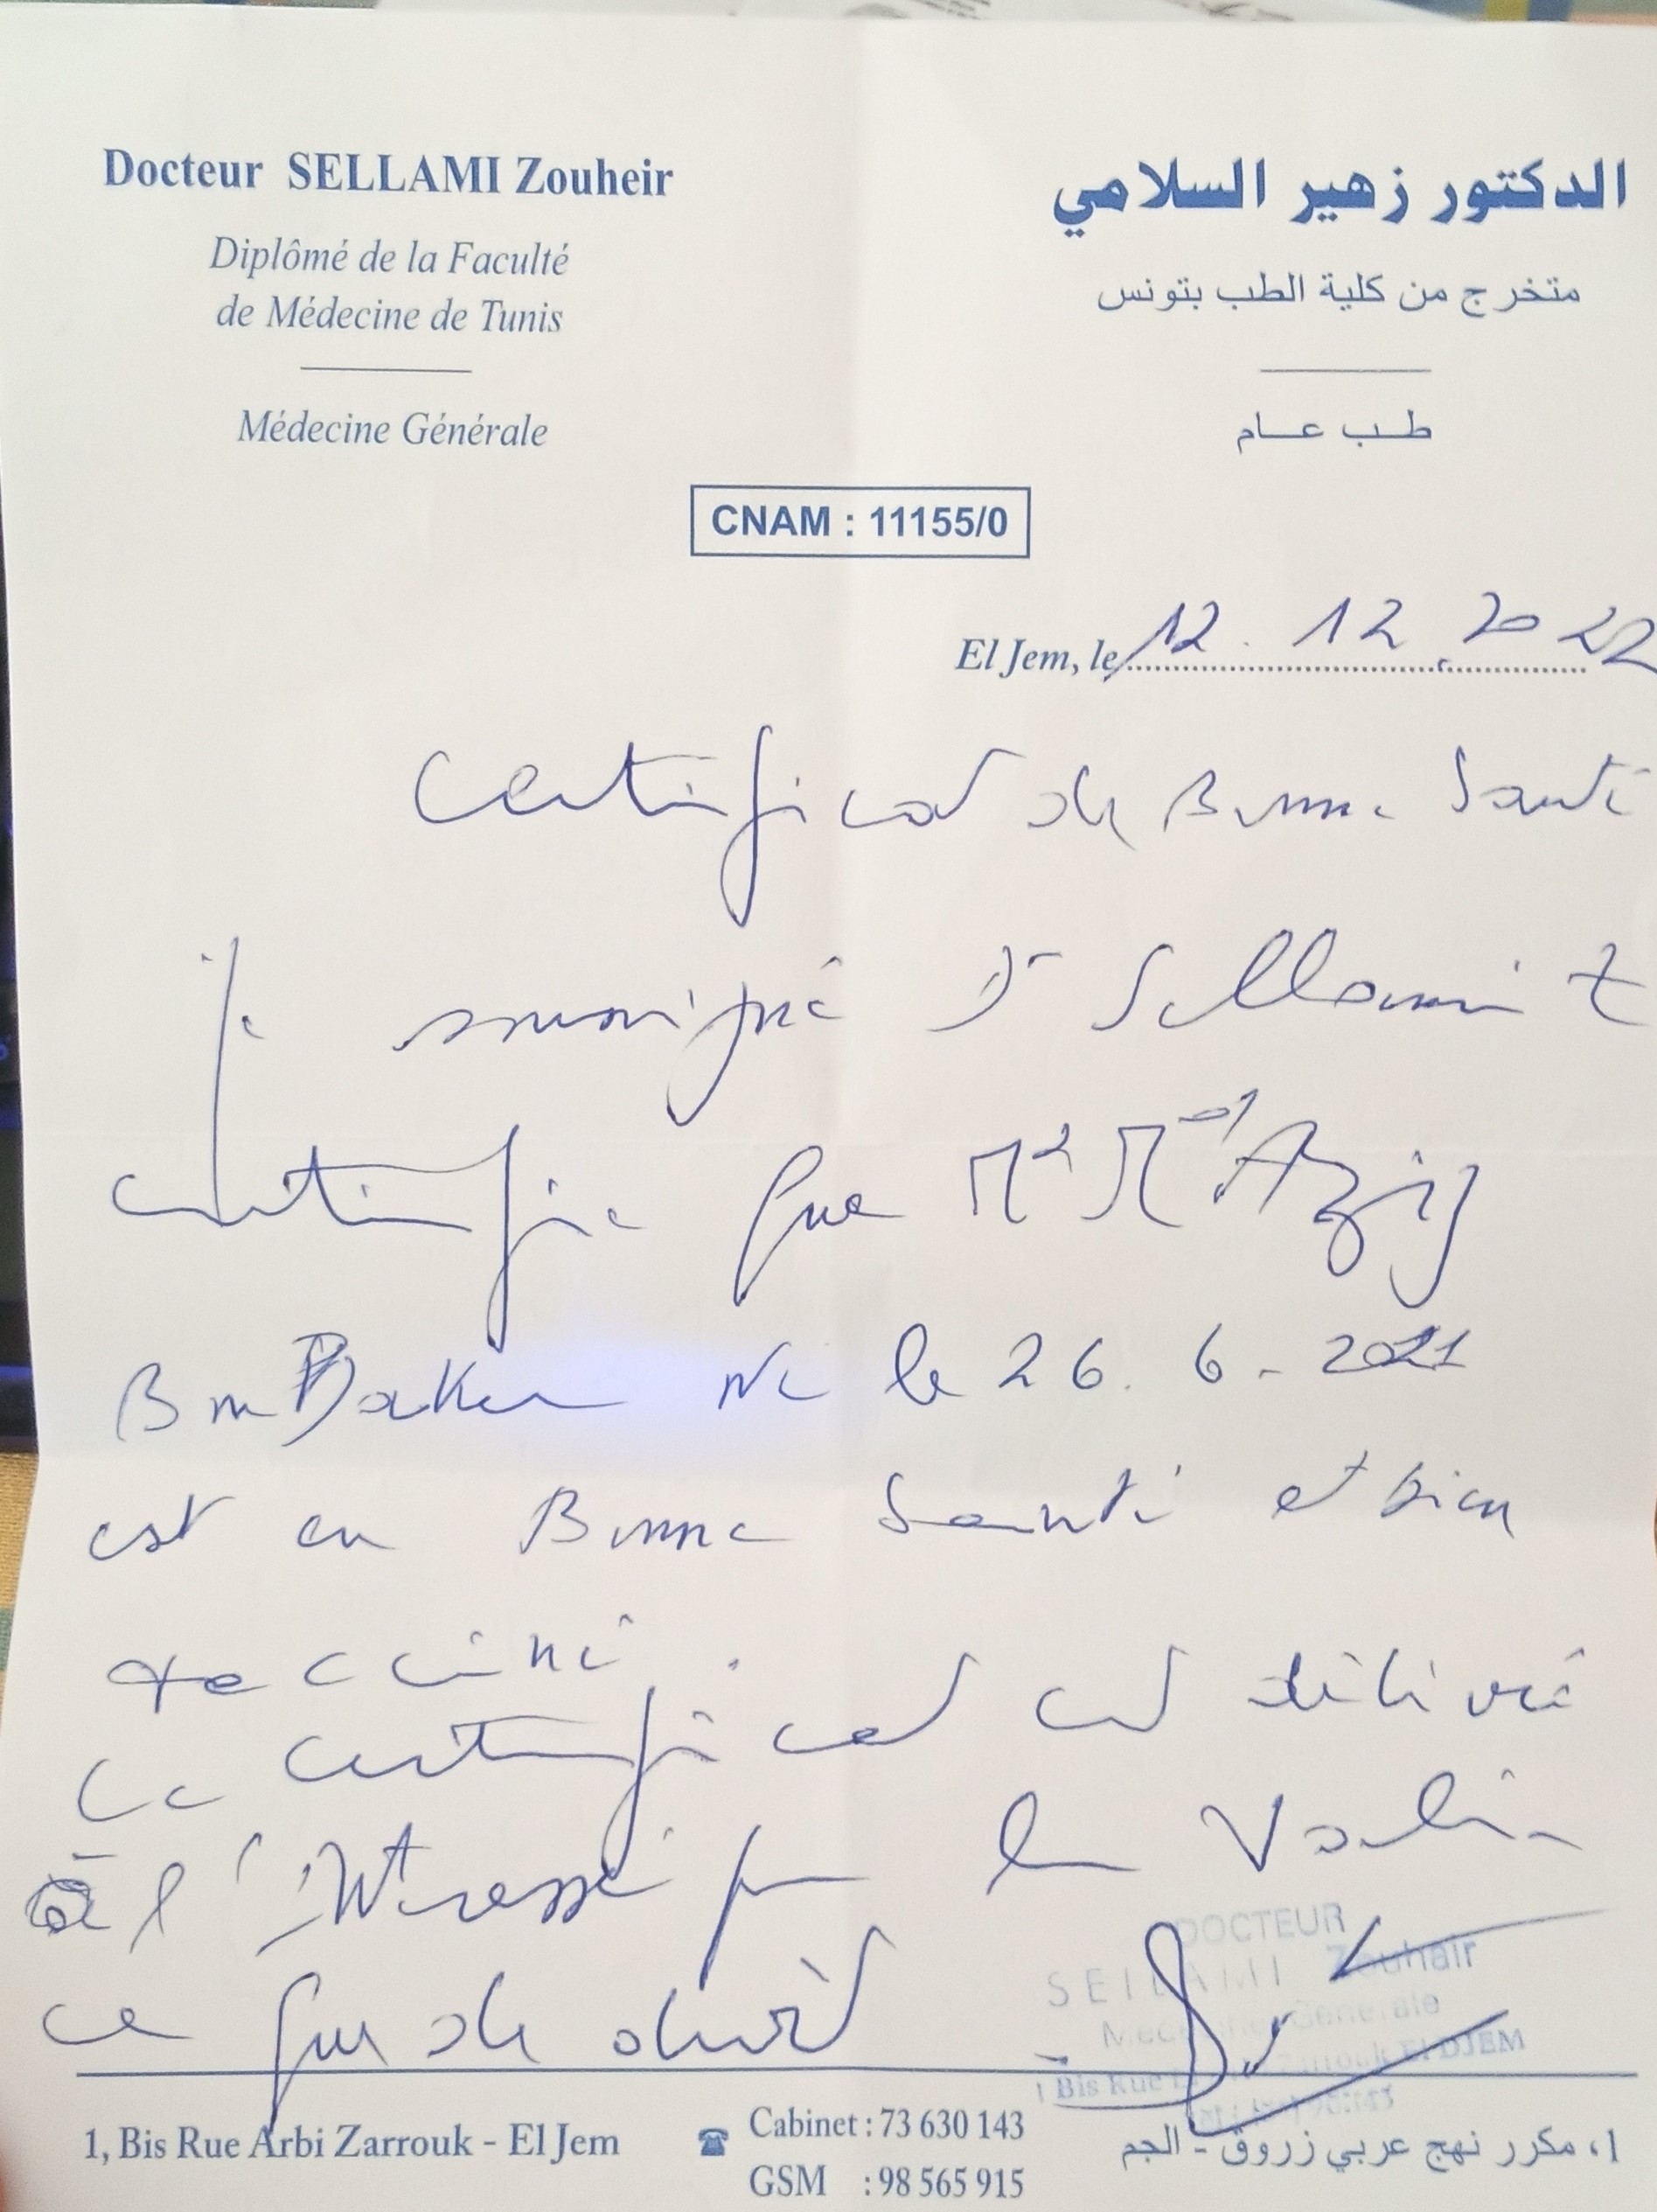 Docteur SELLAMI Zouheir
Diplômé de la Faculté
de Médecine de Tunis
Médecine Générale
الدكتور زهير السلامي
متخرج من كلية الطب بتونس
طب عام
CNAM : 11155/0
El Jem, le 12. 12. 2022
Certificat de Bonne Santé
Je soussigné Dr Sellami Z
certifie que Mr Med Aziz
Ben Baker Né le 26. 6 - 2021
est en Bonne Santé et bien
vacciné.
Ce certificat est délivré
à l'intéressé pour lui Valoir
ce que de droit
DOCTEUR
SELLAMI Zouhair
Médecine Générale
1 Bis Rue Zarrouk El DJEM
1, Bis Rue Arbi Zarrouk - El Jem
Cabinet : 73 630 143
GSM : 98 565 915
1، مكرر نهج عربي زروق - الجم